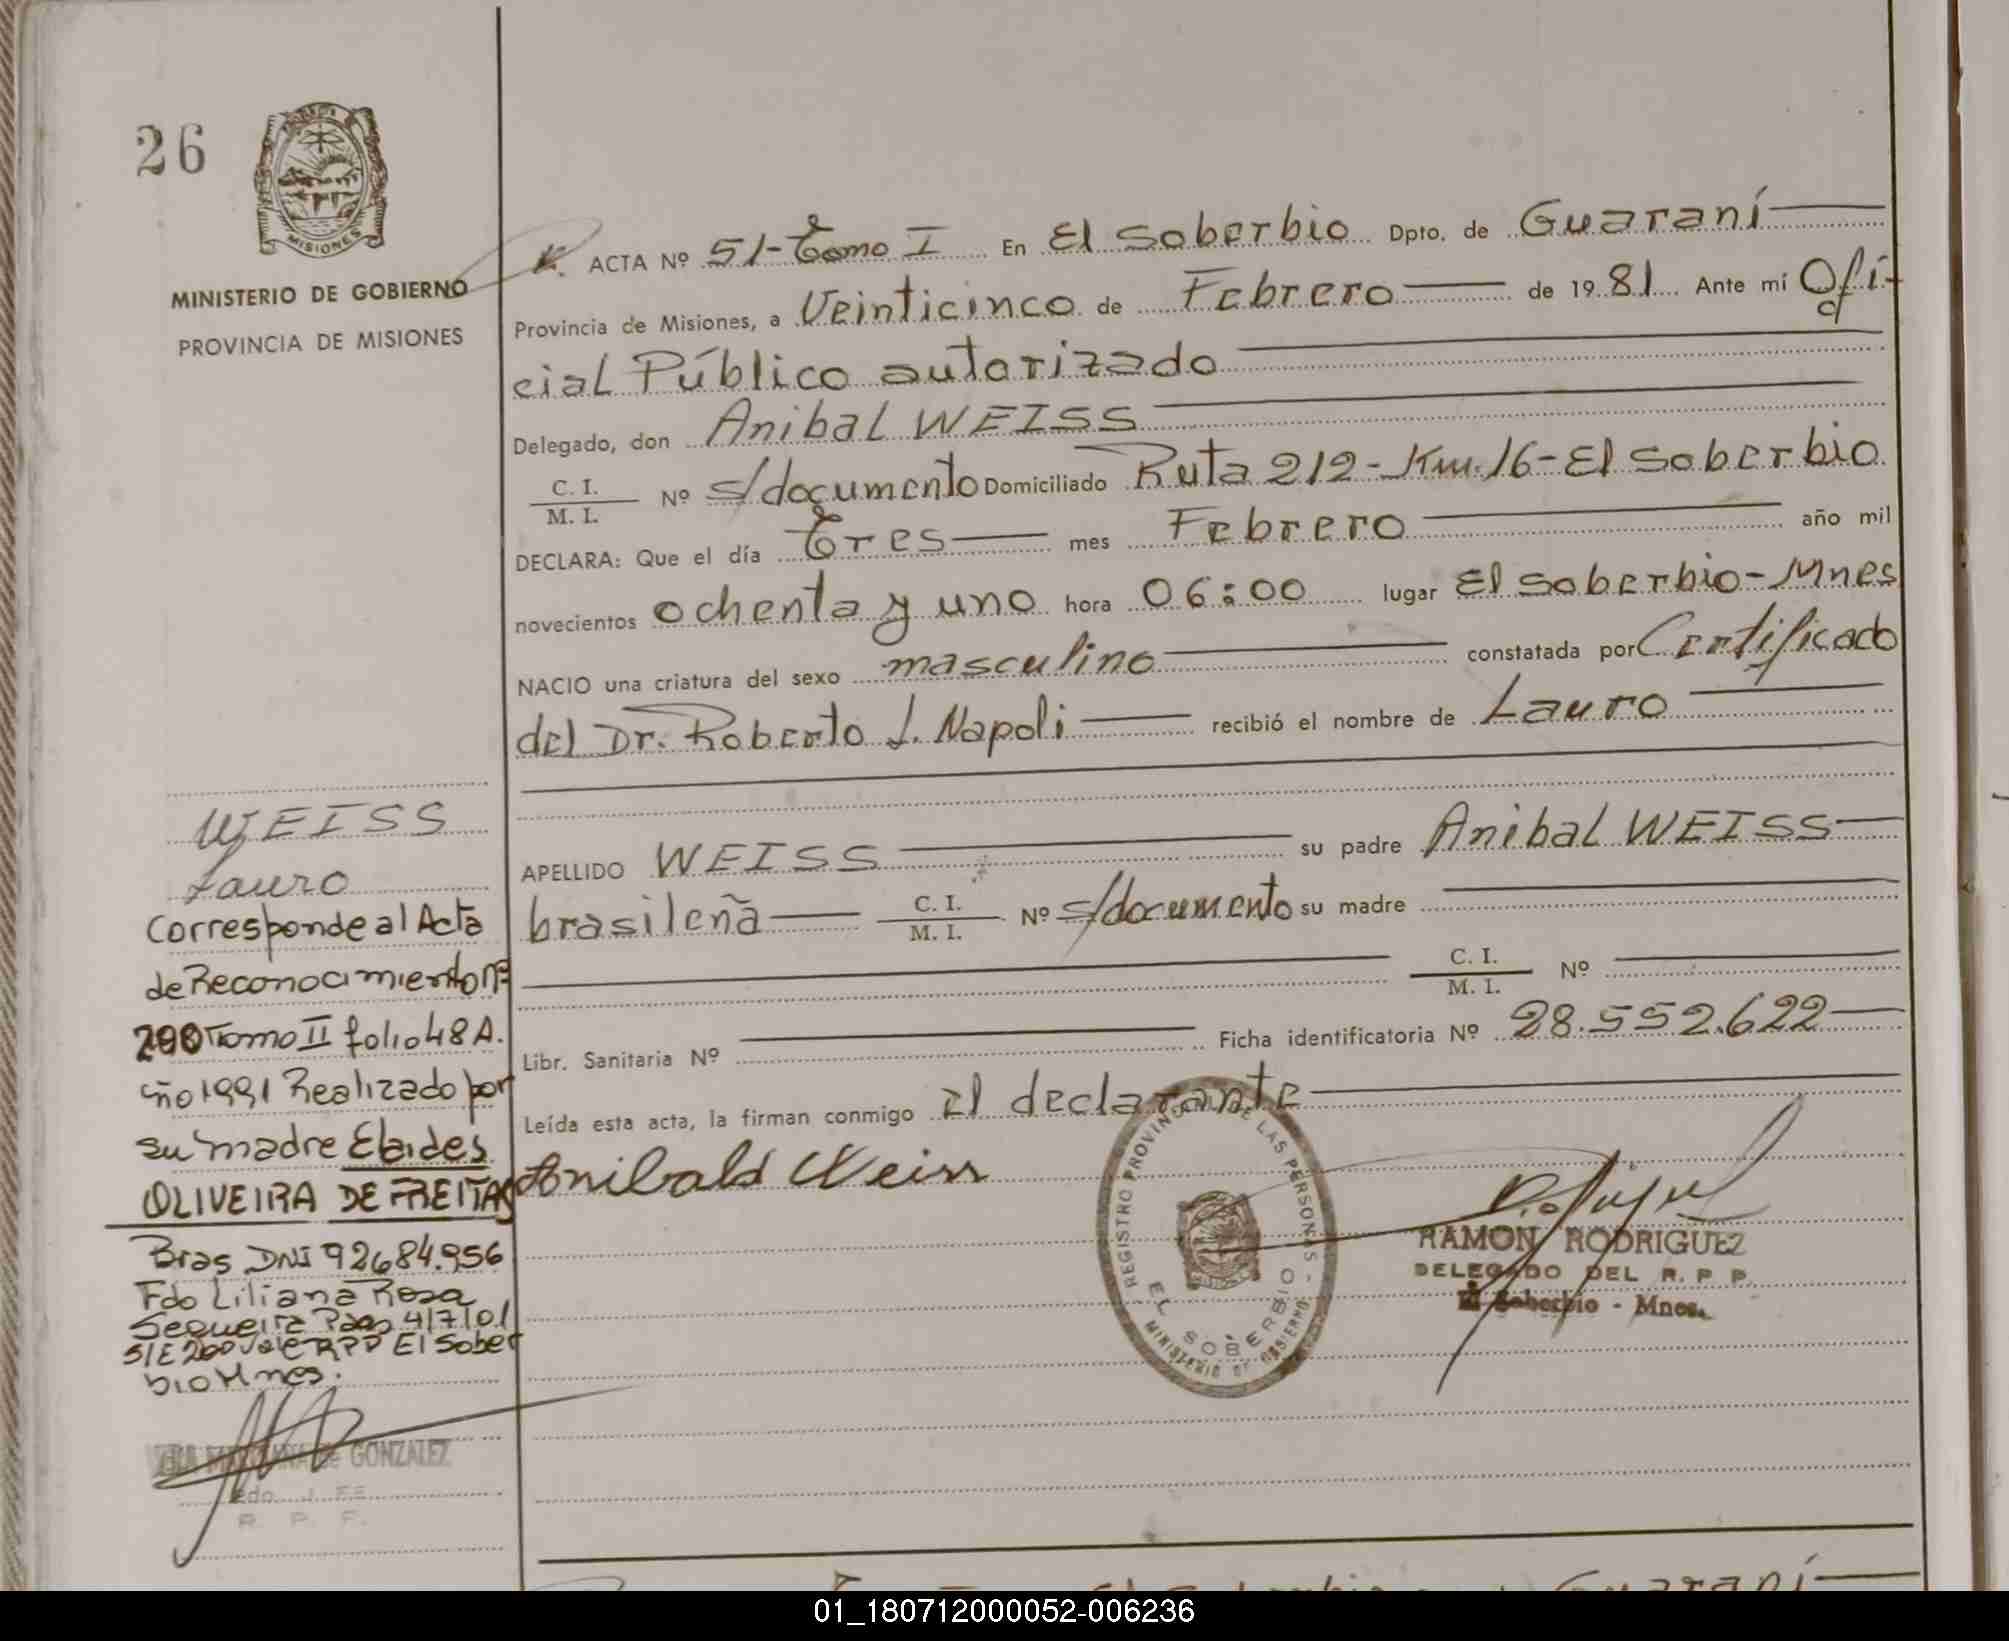 26
MISIONES
MINISTERIO DE GOBIERNO
PROVINCIA DE MISIONES
ACTA Nº 51-Tomo I En El Soberbio Dpto. de Guaraní
Provincia de Misiones, a Veinticinco de Febrero de 1981 Ante mí Ofi-
cial Público autorizado
Delegado, don Anibal WEISS
C. I.
M. I. Nº s/documento Domiciliado Ruta 212-Km.16-El Soberbio
DECLARA: Que el día Tres mes Febrero año mil
novecientos ochenta y uno hora 06:00 lugar El Soberbio-Mnes
NACIO una criatura del sexo masculino constatada por Certificado
del Dr. Roberto J. Napoli recibió el nombre de Lauro
APELLIDO WEISS su padre Anibal WEISS
brasileña C. I.
M. I. Nº s/documento su madre
C. I.
M. I. Nº
Libr. Sanitaria Nº Ficha identificatoria Nº 28.552.622
Leída esta acta, la firman conmigo el declarante
Anibald Weiss
REGISTRO PROVINCIAL DE LAS PERSONAS -
EL SOBERBIO
MINISTERIO DE GOBIERNO
RAMON RODRIGUEZ
DELEGADO DEL R. P. P.
El Soberbio - Mnes.
WEISS
Lauro
Corresponde al Acta
de Reconocimiento nº
200 Tomo II folio 48 A.
año 1991 Realizado por
su madre Elaides
OLIVEIRA DE FREITAS
Bras DNI 92684.956
Fdo Liliana Rosa
Sequeira 4/7/01
S/E 200 RPP El Sober
bio Mnes.
de GONZALEZ
R. P. P.
01_180712000052-006236